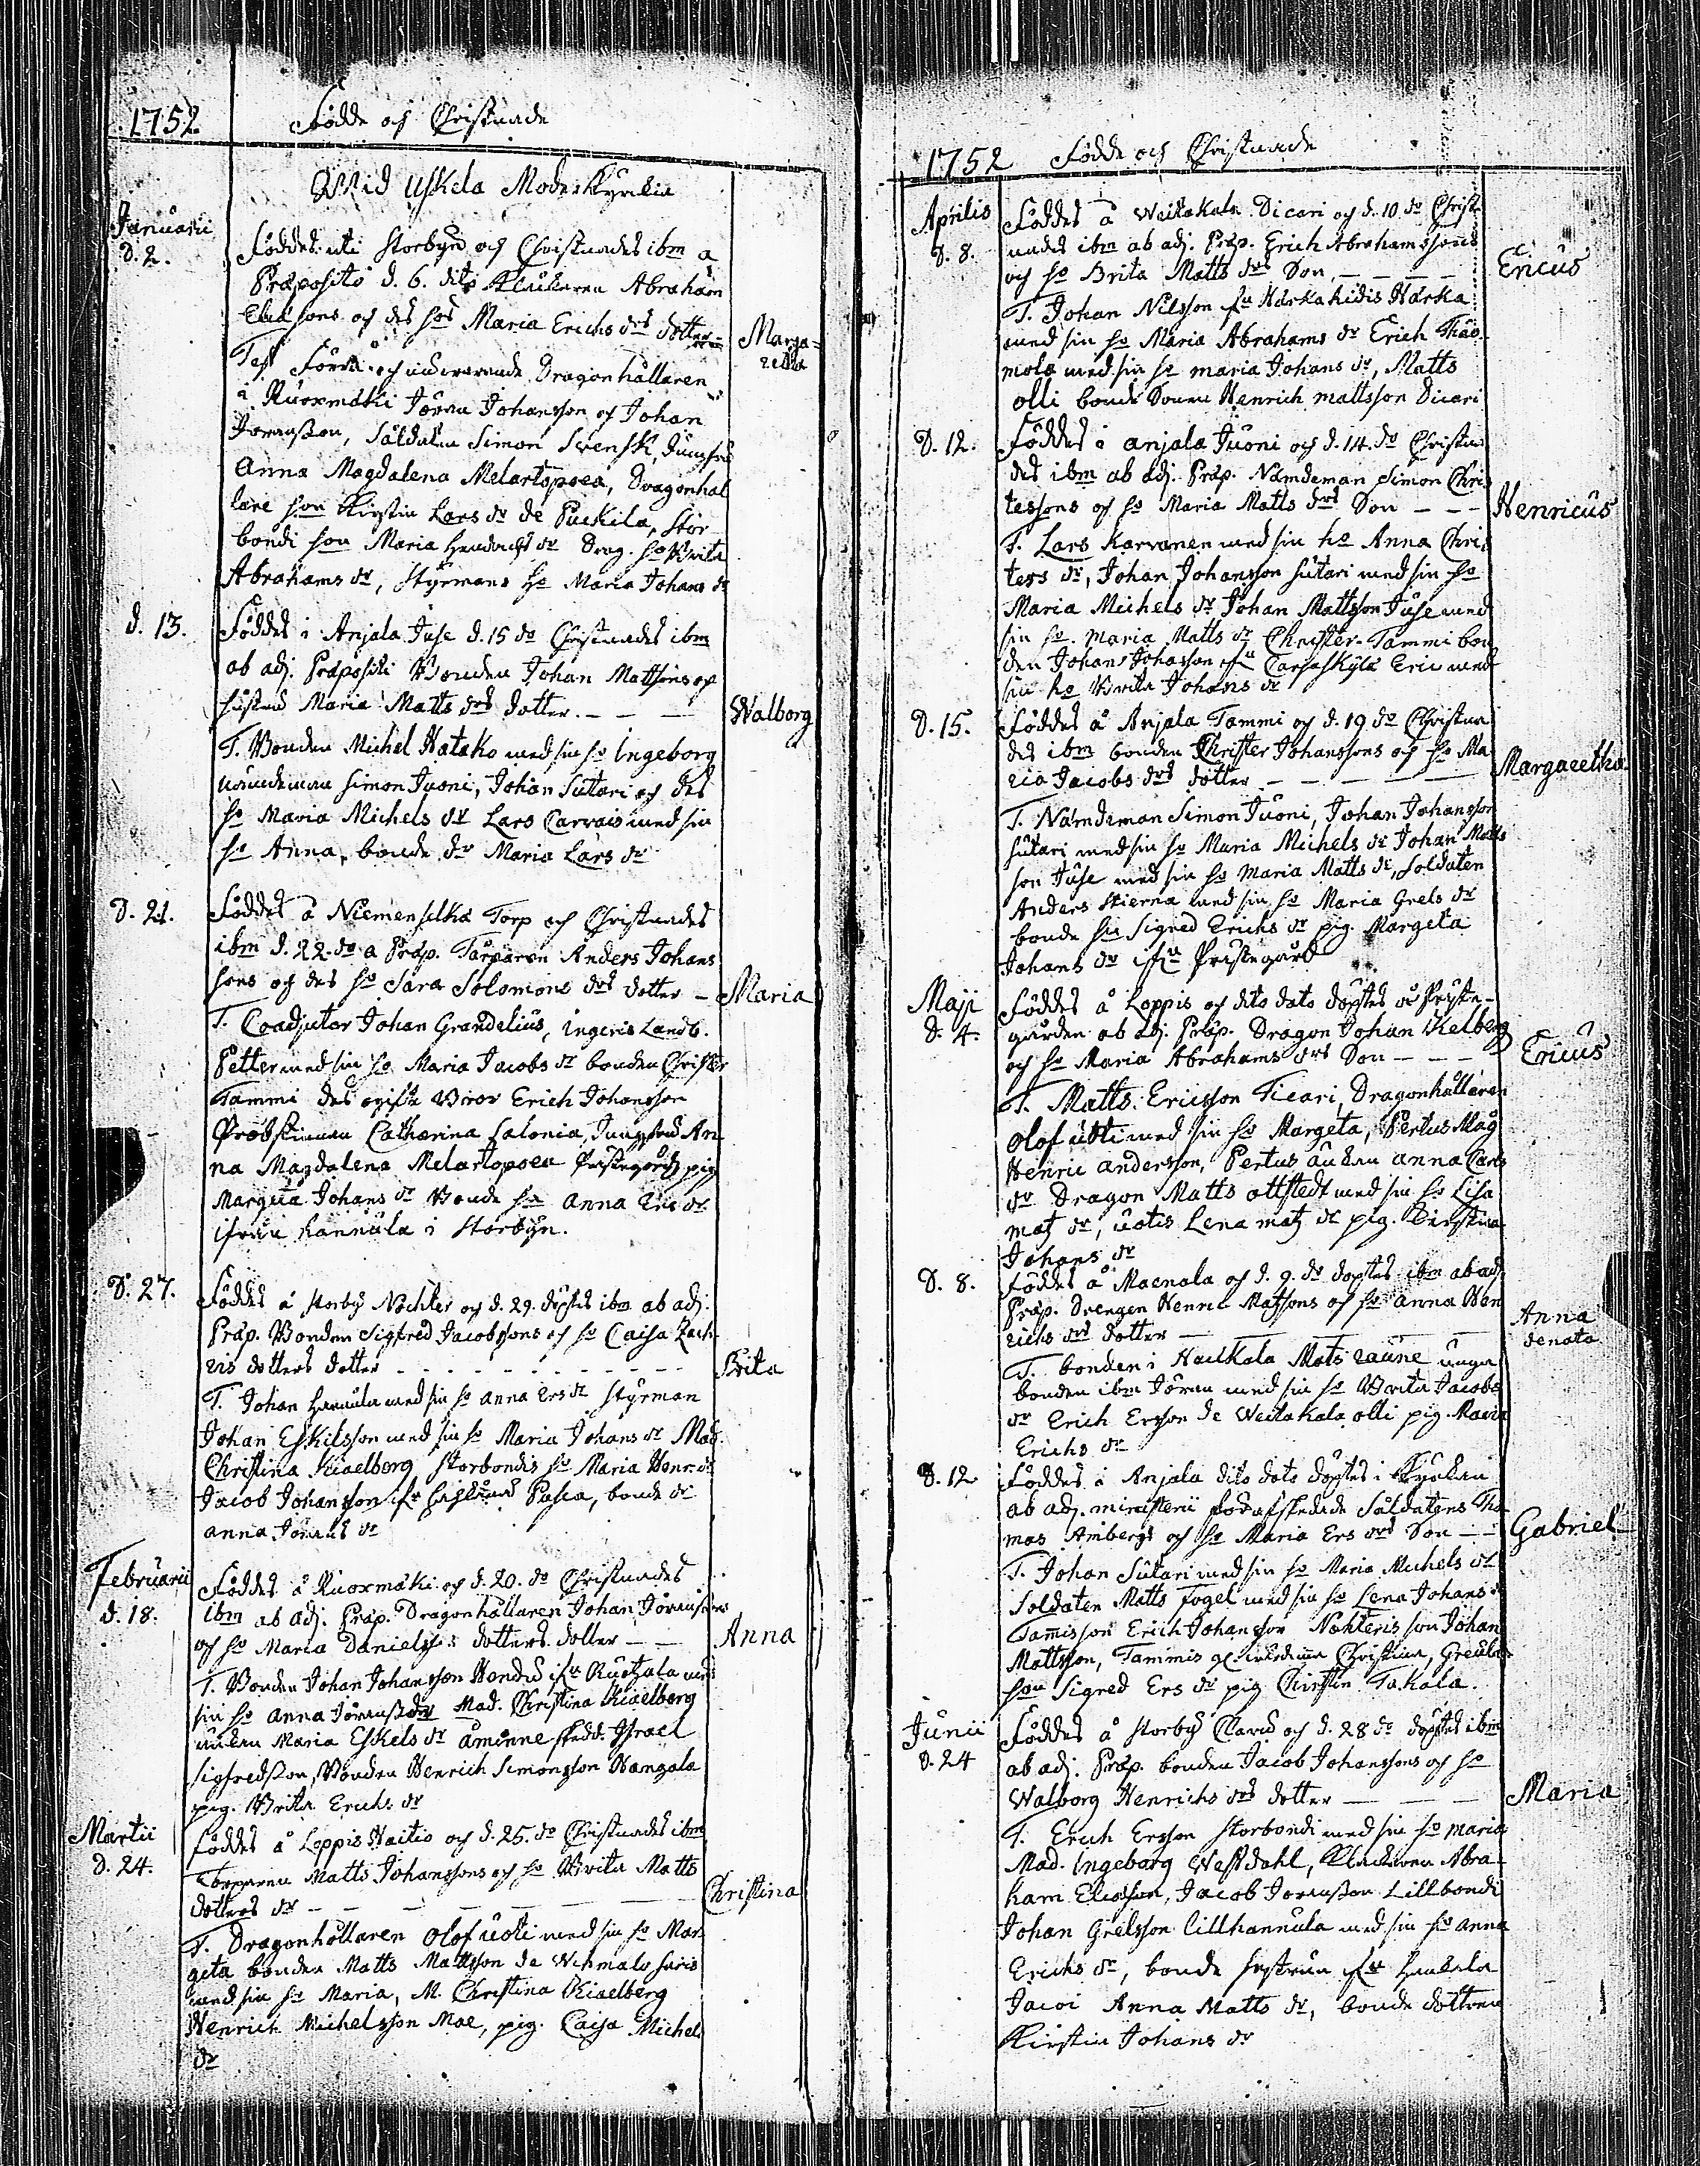 1752. Födde och Christnade
Wid Uskela Moderkyrkia
Januarii
D. 2.
Föddes uti Storbyn och Christnades ibm a
Præposito d. 6. dito Klåckaren Abraham
Eliæ sons och des hos Maria Erichs drs dotter
Marga=
retha
Test Förra och nuvarande Dragonhållaren
i Ruoxmäki Jöran Johansson och Johan
Jöransson, Såldaten Simon Svensk, Jungfru
Anna Magdalena Melartopoea, Dragonhål
lare hon Kirstin Lars dr de Puckila, Stor
bondi hon Maria Hendrichs dr Drag. ho Brita
Abrahams dr, Styrmans Ho Maria Johans dr
d. 13.
Föddes i Anjala Juse d. 15 do Christnades ibm
ab adj. Præpositi Bonden Johan Mattsons och
hustrus Maria Matts drs dotter. - - -
Walborg
T. Bonden Michel Hatako med sin ho Ingeborg
nämdeman Simon Juoni, Johan Sutari och des
ho Maria Michels dr Lars Carvais med sin
ho Anna, bonde dr Maria Lars dr
D. 21.
Föddes å Niemenselkä Torp och Christnades
ibm d. 22. do a Præp. Torparen Anders Johans
sons och des ho Sara Solomons drs dotter -
Maria
T. Coadjutor Johan Grandelius, Ingeris Landb.
Petter med sin ho Maria Jacobs dr bonden Christer
Tammi des ogifta Bror Erich Johansson
Probstinnan Catharina Salonia, Jungfrud An
na Magdalena Melartopoea Prestegårds pig
Margeta Johans dr Bonde ho Anna Ers dr
ifrån Hannula i Storbyn.
D. 27.
Föddes å Storby Nochter och d. 29. döptes ibm ab adj.
Præp. Bonden Sigfred Jacobssons och ho Caisa Zach
ris dotters dotter - - - - - - - -
Brita
T. Johan Hannula med sin ho Anna Ers dr Styrman
Johan Eskilsson med sin ho Maria Johans dr Mad.
Christina Kiaelberg Storbondis ho Maria Henr. dr
Jacob Johansson ifr Pasca, bonde dr
anna Jörans dr
Februarii
d. 18.
Föddes å Ruoxmäki och d. 20. do Christnades
ibm ab adj. Præp. Dragonhållaren Johan Jöransons
och ho Maria Danielss: dotters dotter - -
Anna
T. Bonden Johan Johansson Hondu ifr Ruotzala med
sin ho Anna Jörans dr Mad. Christina Kiaelberg
änkan Maria Eskels dr åminne skedd. Israel
Sigfredsson, Bonden Henrich Simonsson Hangala
pig. Brita Erichs dr
Martii
D. 24.
Föddes å Loppis Haitio och d. 25. do Christnades ibm
Torparen Matts Johanssons och ho Brita Matts
dotters dr - - - - - -
Christina
T. Dragonhållaren Olof uoti med sin ho Mar
geta bonden Matts Mattsson de Wehmalo haris
med sin ho Maria, M. Christina Kiaelberg
Henrich Michelsson Moe, pig. Caisa Michels
dr
1752 Födde och Christnade
Aprilis
D. 8.
Föddes å Weitakala Dicari och d. 10 do Christ
nades ibm ab adj. Præp. Erich Abrahamssons
och ho Brita Matts drs Son, - - - -
Ericus
T. Johan Nilsson fr Härkähidis Härkä
med sin ho Maria Abrahams dr Erich Thäo
mola med sin ho maria Johans dr, Matts
olli bonde Sonen Henrich mattsson Dicari
D. 12.
Föddes i anjala Juoni och d. 14. do Christna
des ibm ab adj. Præp. Nämdeman Simon Chris
tessons och ho Maria Matts drs Son - - -
Henricus
T. Lars Karvanen med sin ho Anna Chris
ters dr, Johan Johansson Sutari med sin ho
Maria Michels dr Johan Mattsson Juse med
sin ho. Maria Matts dr Christer Tammi bon
den Johans Johansson ifrn Carsaskylä Eric med
sin ho Brita Johans dr
D. 15.
Föddes å Anjala Tammi och d. 19 do Christna
des ibm bonden Christer Johanssons och ho Ma
ria Jacobs drs dotter - - - -
Margaretha
T. Nämdeman Simon Juoni, Johan Johansson
Sutari med sin ho Maria Michels dr Johan Matts
son Juse med sin ho Maria Matts dr, Soldaten
Anders Stierna med sin ho Maria Grels dr
bonde ho Sigred Erichs dr pig. Margeta
Johans dr ifrn Prestegård
Maji
D. 4.
Föddes å Loppis och dito dato döptes på Preste-
gården ab adj. Præp. Dragon Johan Kelberg
och ho Maria Abrahams drs Son - - -
Ericus
T. Matts Ericsson Ticari, Dragonhållaren
Olof uoti med sin ho Margeta, Pertus Måg
Henric andersson, Pertus änkan anna Carls
dr Dragon Matts ottstedt med sin ho Lisa
matz dr, uotis Lena matz dr pig. Kirstin
Johans dr
D. 8.
Föddes å Maenala och d. 9. do döptes ibm ab adj
Præp. Drengen Henric Matssons och ho anna Hen
richs drs dotter - - -
Anna
denata
T. bonden i Haukala Mats raune unga
bonden ibm Jöran med sin ho Brita Jacobs
dr Erich Ersson de Weitakala olli pig. Maria
Erichs dr
D. 12
Föddes i Anjala dito dato döptes i Kyrckan
ab adj. ministerii för afskedade Såldatens Tho
mas Ambergs och ho Maria Ers drs Son - -
Gabriel
T. Johan Sutari med sin ho Maria Michels dr
Soldaten Matts Fogel med sin ho Lena Johans dr
Tammis son Erich Johansson Nohteris son Johan
Mattsson, Tammis Christina,
hon Sigred Ers dr pig Christin Takala.
Junii
D. 24
Föddes å Storby Clavu och d. 28 do döptes ibm
ab adj. Præp. bonden Jacob Johanssons och ho
Walborg Henrichs drs dotter - - -
Maria
T. Erich Ersson Storbondi med sin ho maria
Mad. Ingeborg Westdahl, Klåckaren Abra-
ham Eliæsson, Jacob Jöransson Lillbondi
Johan Grelsson Lillhannula med sin ho anna
Erichs dr, bonde hustrun ifr Haukala
Jacoi Anna Matts dr, bonde dottren
Kirstin Johans dr